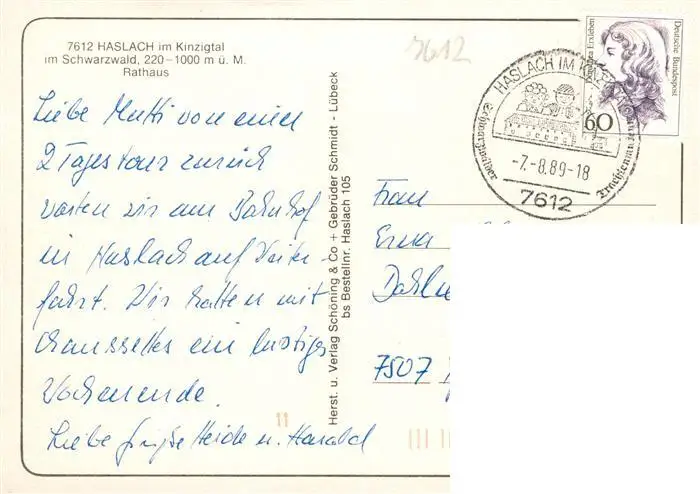 7612 HASLACH im Kinzigtal
im Schwarzwald, 220-1000 m ü. M.
Rathaus
7612
Liebe Mutti von einer
2 Tagestour zurück
warten wir am Bahnhof
in Haslach auf Weiter-
fahrt. Wir hatten mit
ein lustiges
Wochenende.
Liebe Grüße Heide u. Harald
Herst. u. Verlag Schöning & Co + Gebrüder Schmidt - Lübeck
bs Bestellnr. Haslach 105
Erxleben
Deutsche Bundespost
60
HASLACH IM
Schwarzwälder
-7.-8.89-18
7612
Frau
Erna
7507